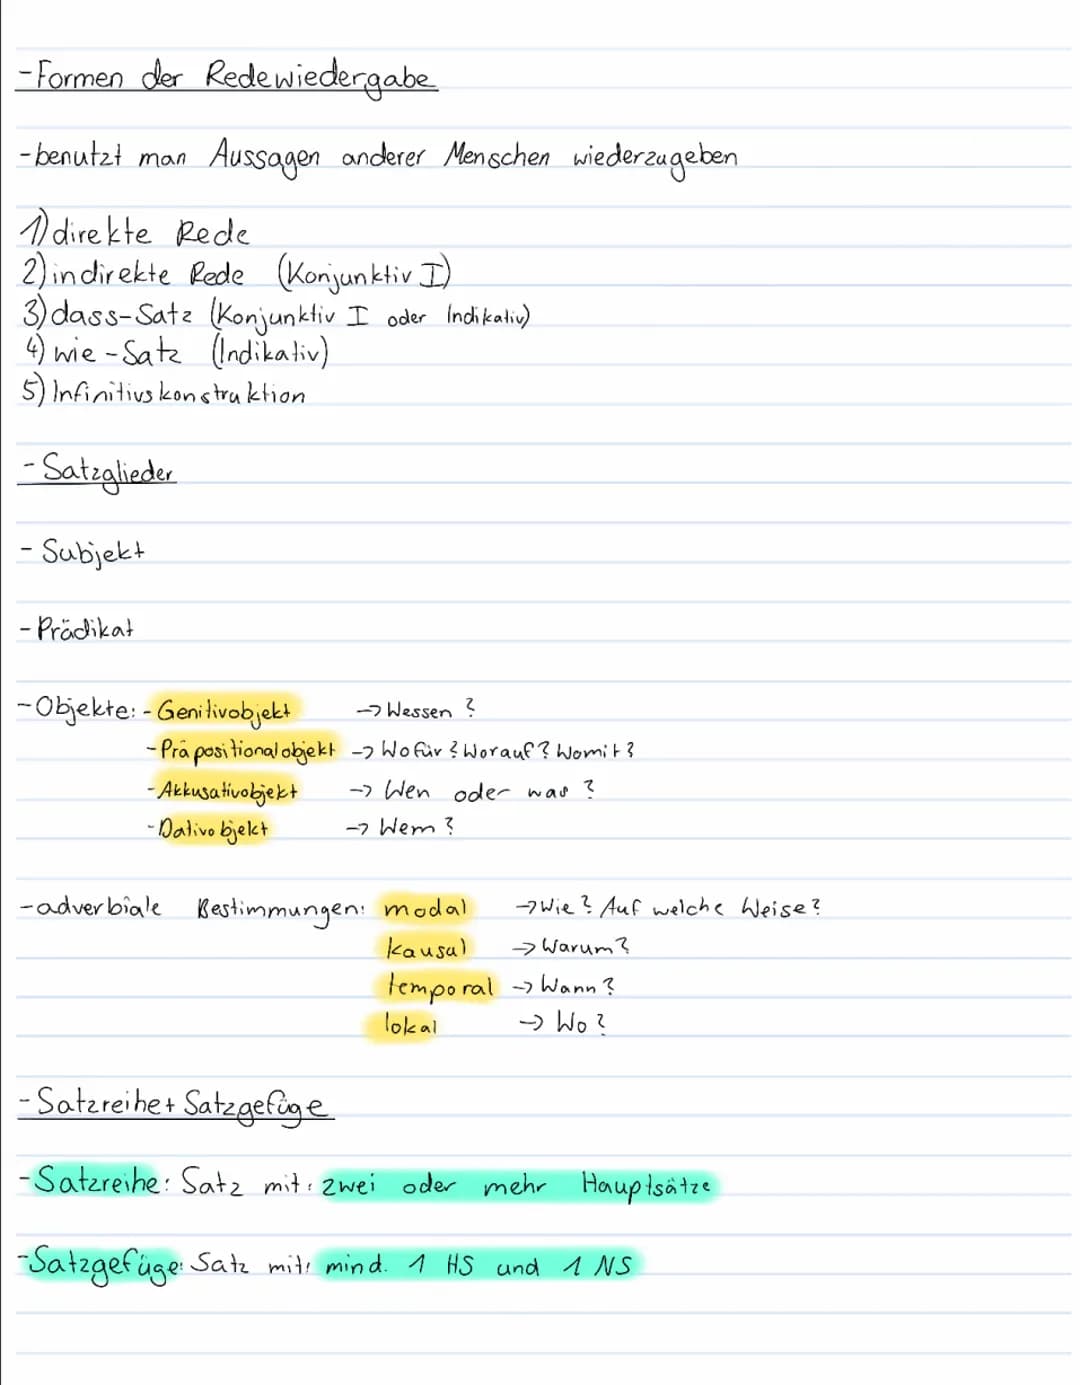 -Formen der Redewiedergabe
-benutzt man Aussagen anderer Menschen wiederzugeben
1) direkte Rede
2) indirekte Rede (Konjunktiv I)
3) dass-Satz (Konjunktiv I oder Indikativ)
4) wie-Satz (Indikativ)
5) Infinitivskonstruktion
-Satzglieder
- Subjekt
-Prädikat
-Objekte: -Genitivobjekt -> Wessen?
-Präpositionalobjekt -> Wofür? Worauf? Womit?
-Akkusativobjekt -> Wen oder was?
-Dativobjekt -> Wem?
-adverbiale Bestimmungen: modal -> Wie? Auf welche Weise?
kausal -> Warum?
temporal -> Wann?
lokal -> Wo?
-Satzreihe+ Satzgefüge
-Satzreihe: Satz mit: zwei oder mehr Hauptsätze
-Satzgefüge: Satz mit: mind. 1 HS und 1 NS